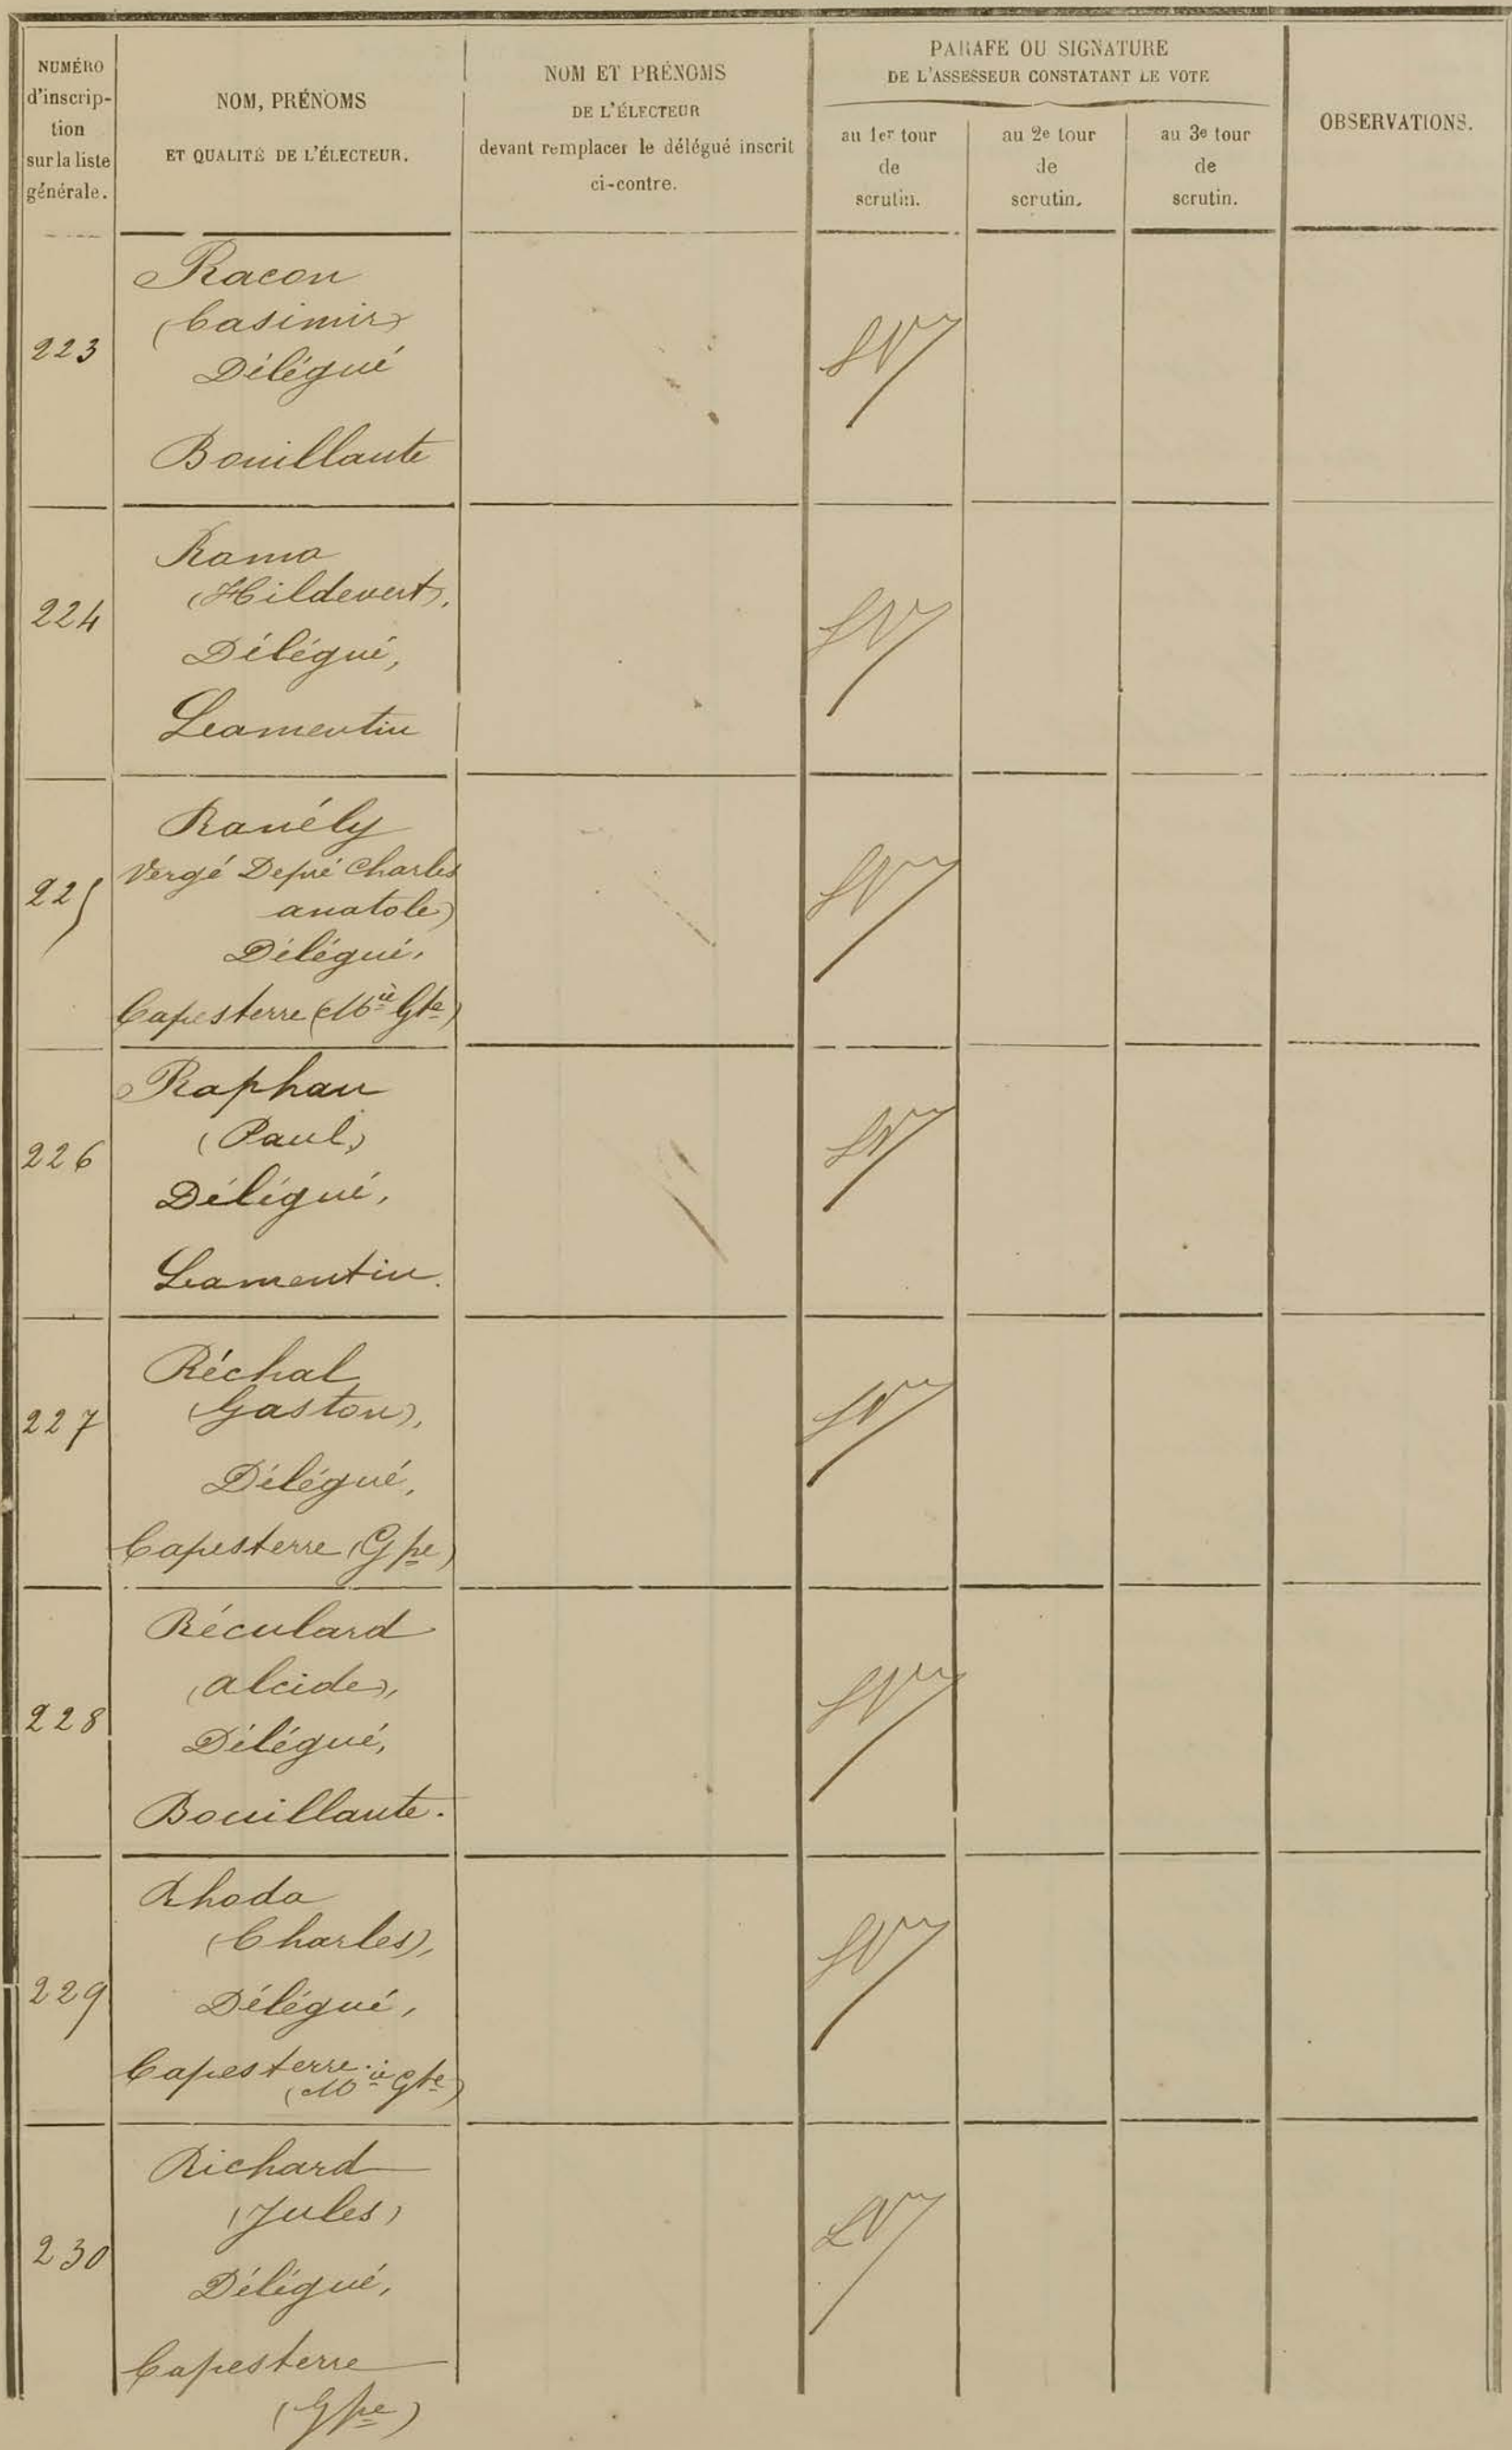 NUMÉRO
d'inscrip-
tion
sur la liste
générale.
NOM, PRÉNOMS
ET QUALITÉ DE L'ÉLECTEUR.
NOM ET PRÉNOMS
DE L'ÉLECTEUR
devant remplacer le délégué inscrit
ci-contre.
PARAFE OU SIGNATURE
DE L'ASSESSEUR CONSTATANT LE VOTE
au 1er tour
de
scrutin.
au 2e tour
de
scrutin.
au 3e tour
de
scrutin.
OBSERVATIONS.
223
Racon
(Casimir)
Délégué
Bouillante
224
Rama
(Hildevert),
Délégué,
Lamentin
225
Ranély
Vergé Depré Charles
anatole)
Délégué,
Capesterre (Mie Gte)
226
Raphan
(Paul)
Délégué,
Lamentin.
227
Réchal
(Gaston),
Délégué,
Capesterre (Gpe)
228
Réculard
(alcide),
Délégué,
Bouillante.
229
Rhoda
(Charles),
Délégué,
Capesterre
(Mie Gte)
230
Richard
(Jules)
Délégué,
Capesterre
(Gpe)